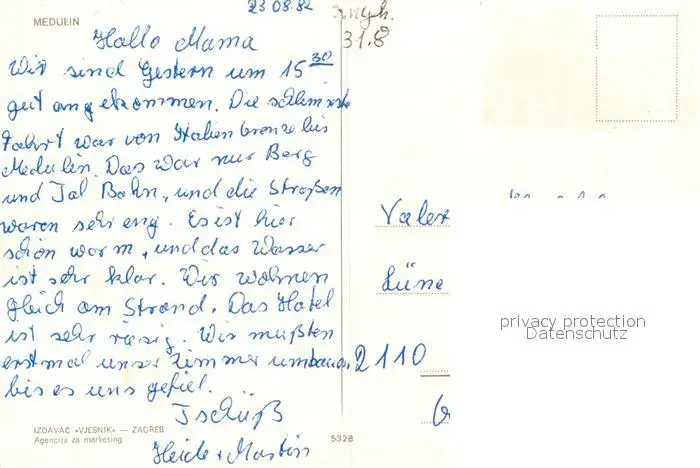 MEDULIN
23 08.82
31.8
Hallo Mama
Wir sind Gestern um 15 30
gut angekommen. Die schlimmste
Fahrt war von Italien Grenze bis
Medulin. Das war nur Berg
und Tal Bahn, und die Straßen
waren sehr eng. Es ist hier
schön warm, und das Wasser
ist sehr klar. Wir wohnen
gleich am Strand. Das Hotel
ist sehr riesig. Wir mußten
erstmal unser Zimmer umbauen
bis es uns gefiel.
Tschüß
Heide + Martin
IZDAVAČ «VJESNIK» — ZAGREB
Agencija za marketing
5328
Valer
Lüne
2110
privacy protection
Datenschutz